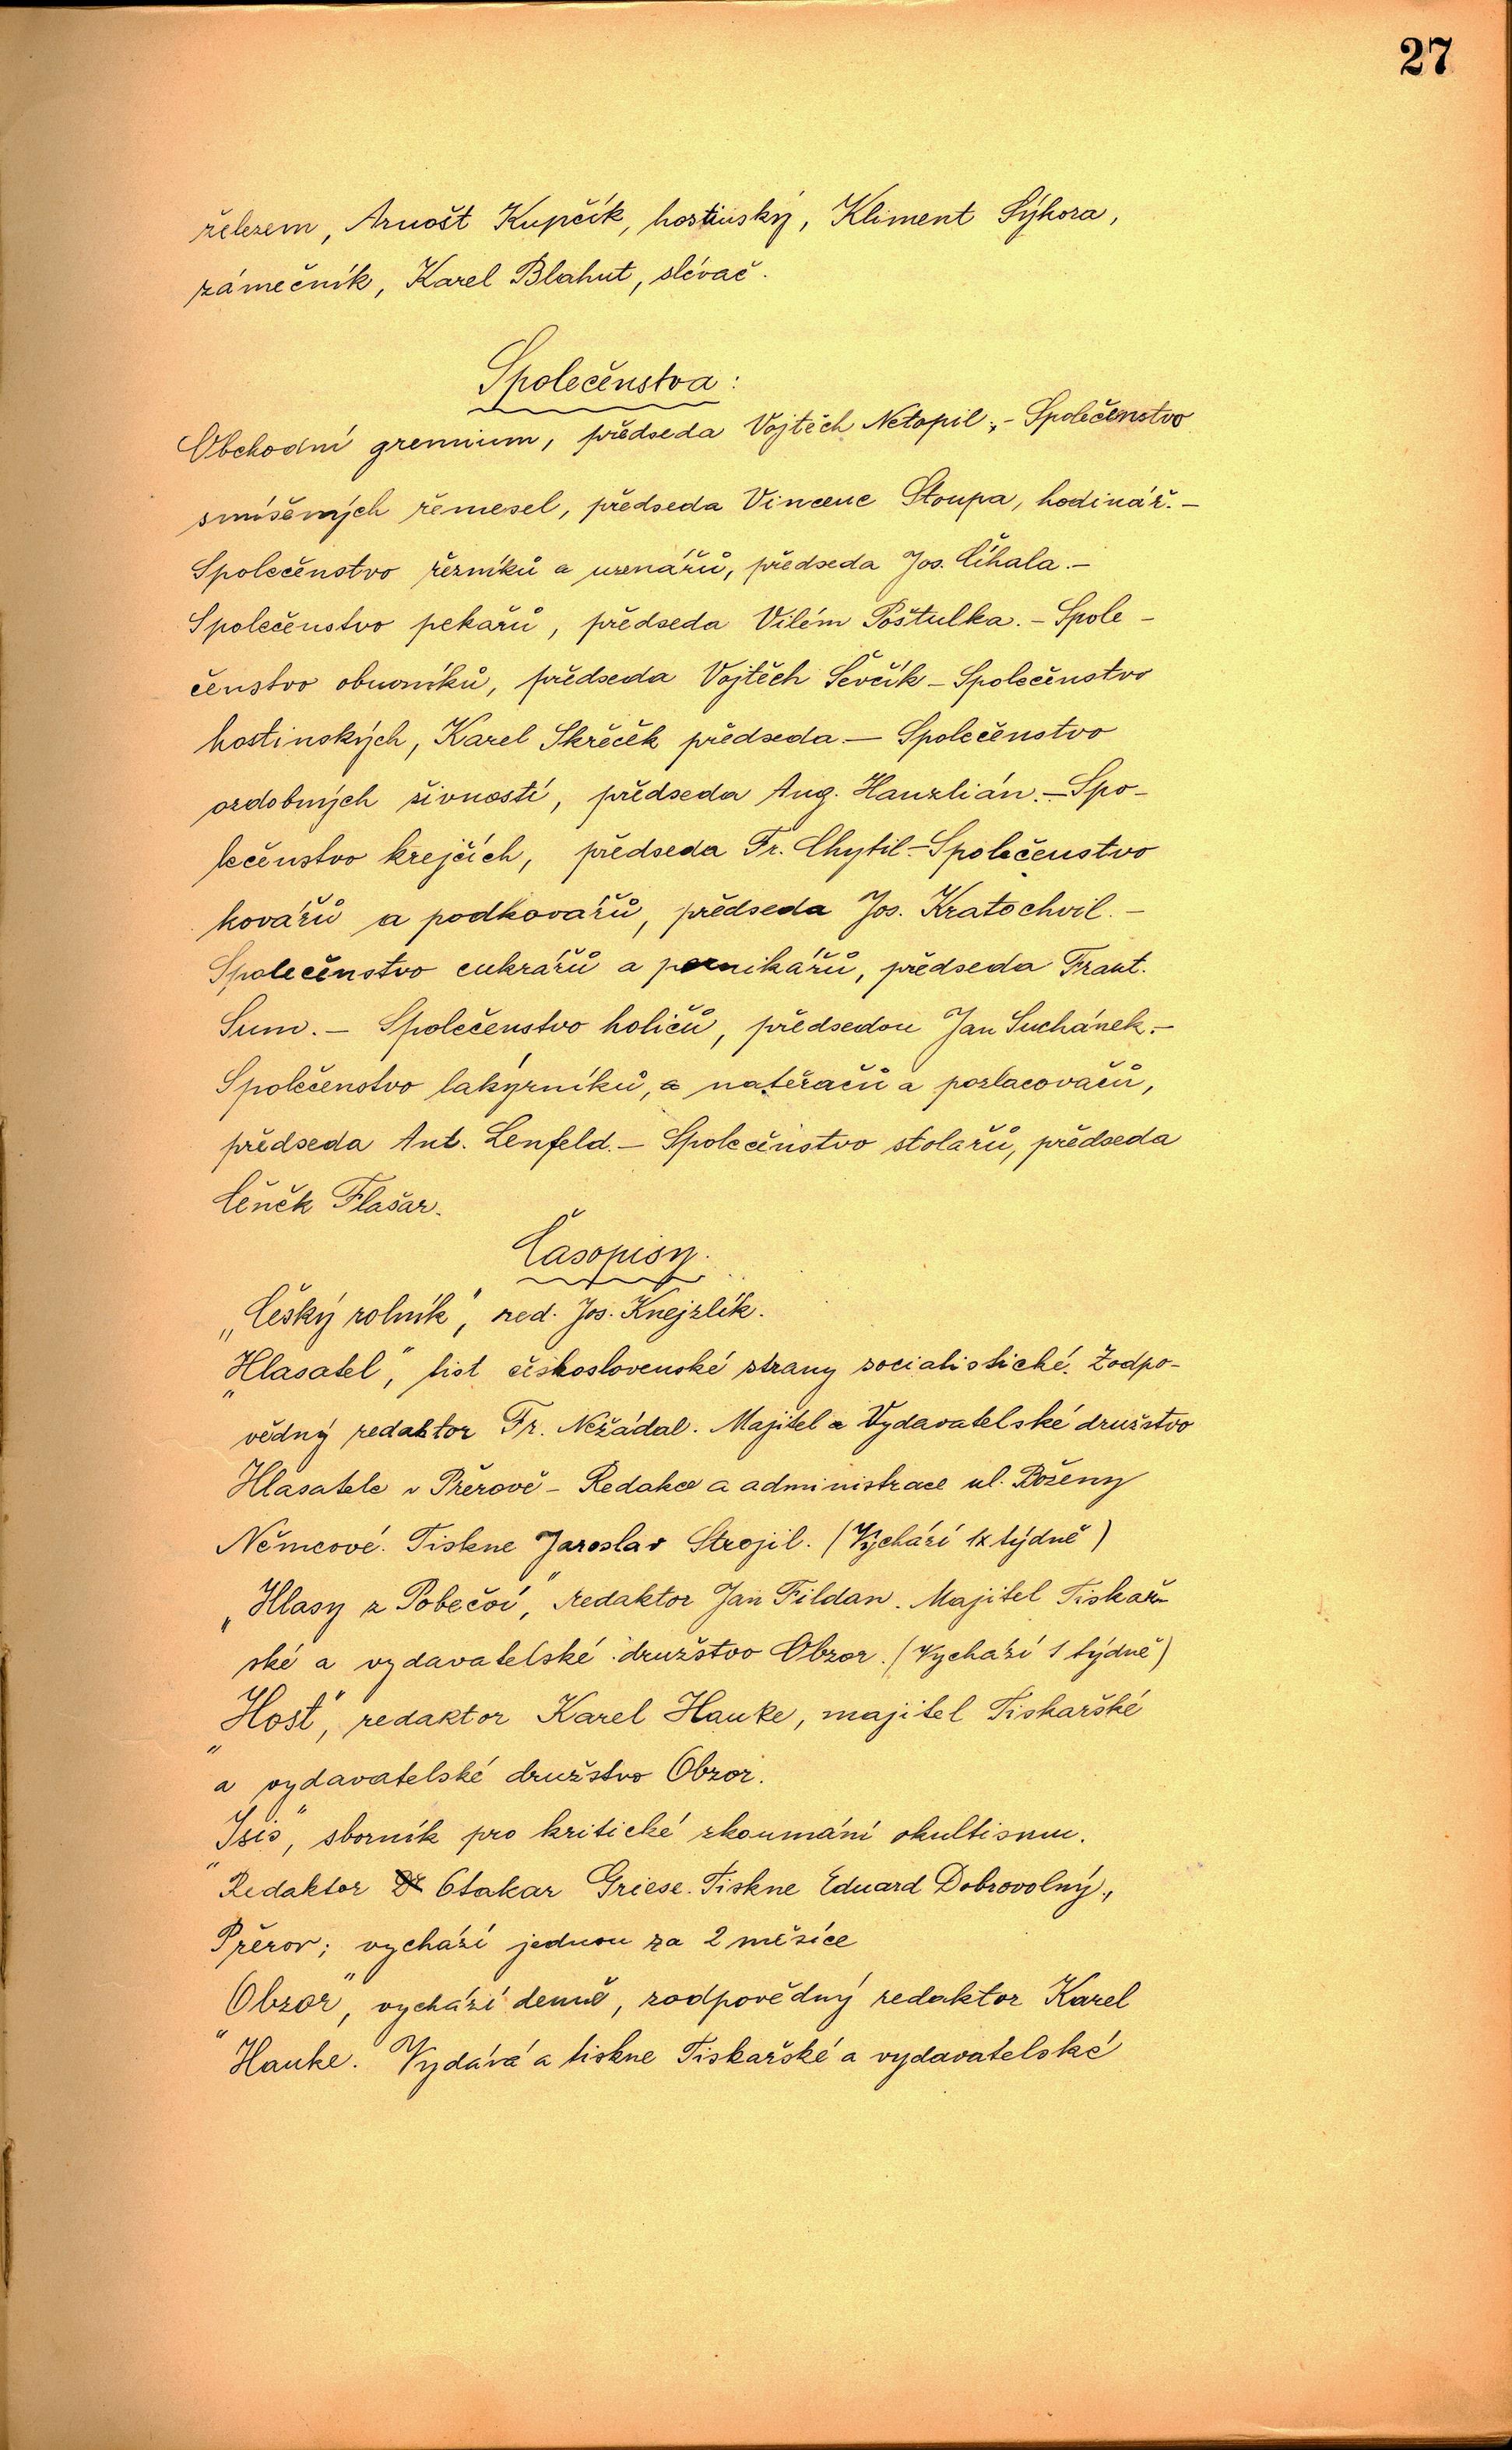 27
železem, Arnošt Kupčík, hostinský, Kliment Sýkora,
zámečník, Karel Blahut, slévač.
Společenstva:
Obchodní gremium, předseda Vojtěch Netopil, - Společenstvo
smíšených řemesel, předseda Vincenc Stoupa, hodinář. -
Společenstvo řezníků a uzenářů, předseda Jos. Číhala. -
Společenstvo pekařů, předseda Vilém Poštulka. - Spole-
čenstvo obuvníků, předseda Vojtěch Ševčík - Společenstvo
hostinských, Karel Skřeček předseda. - Společenstvo
ozdobných živností, předseda Aug. Hanzlián. - Spo-
lečenstvo krejčích, předseda Fr. Chytil. - Společenstvo
kovářů a podkovářů, předseda Jos. Kratochvil. -
Společenstvo cukrářů a perníkářů, předseda Frant.
Šum. - Společenstvo holičů, předsedou Jan Suchánek. -
Společenstvo lakýrníků, a natěračů a pozlacovačů,
předseda Ant. Lenfeld. - Společenstvo stolařů, předseda
Čeněk Flašar.
Časopisy.
„Český rolník", red. Jos. Knejzlík.
„Hlasatel", list československé strany socialistické. Zodpo-
vědný redaktor Fr. Nežádal. Majitel a Vydavatelské družstvo
Hlasatele v Přerově - Redakce a administrace ul. Boženy
Němcové. Tiskne Jaroslav Strojil. (Vychází 1x týdně)
„Hlasy z Pobečví", redaktor Jan Fildan. Majitel Tiskař-
ské a vydavatelské družstvo Obzor. (Vychází 1 týdně)
„Host", redaktor Karel Hauke, majitel Tiskařské
a vydavatelské družstvo Obzor.
„Isis", sborník pro kritické zkoumání okultismu.
Redaktor Otakar Griese. Tiskne Eduard Dobrovolný,
Přerov; vychází jednou za 2 měsíce
„Obzor", vychází denně, zodpovědný redaktor Karel
Hauke. Vydává a tiskne Tiskařské a vydavatelské